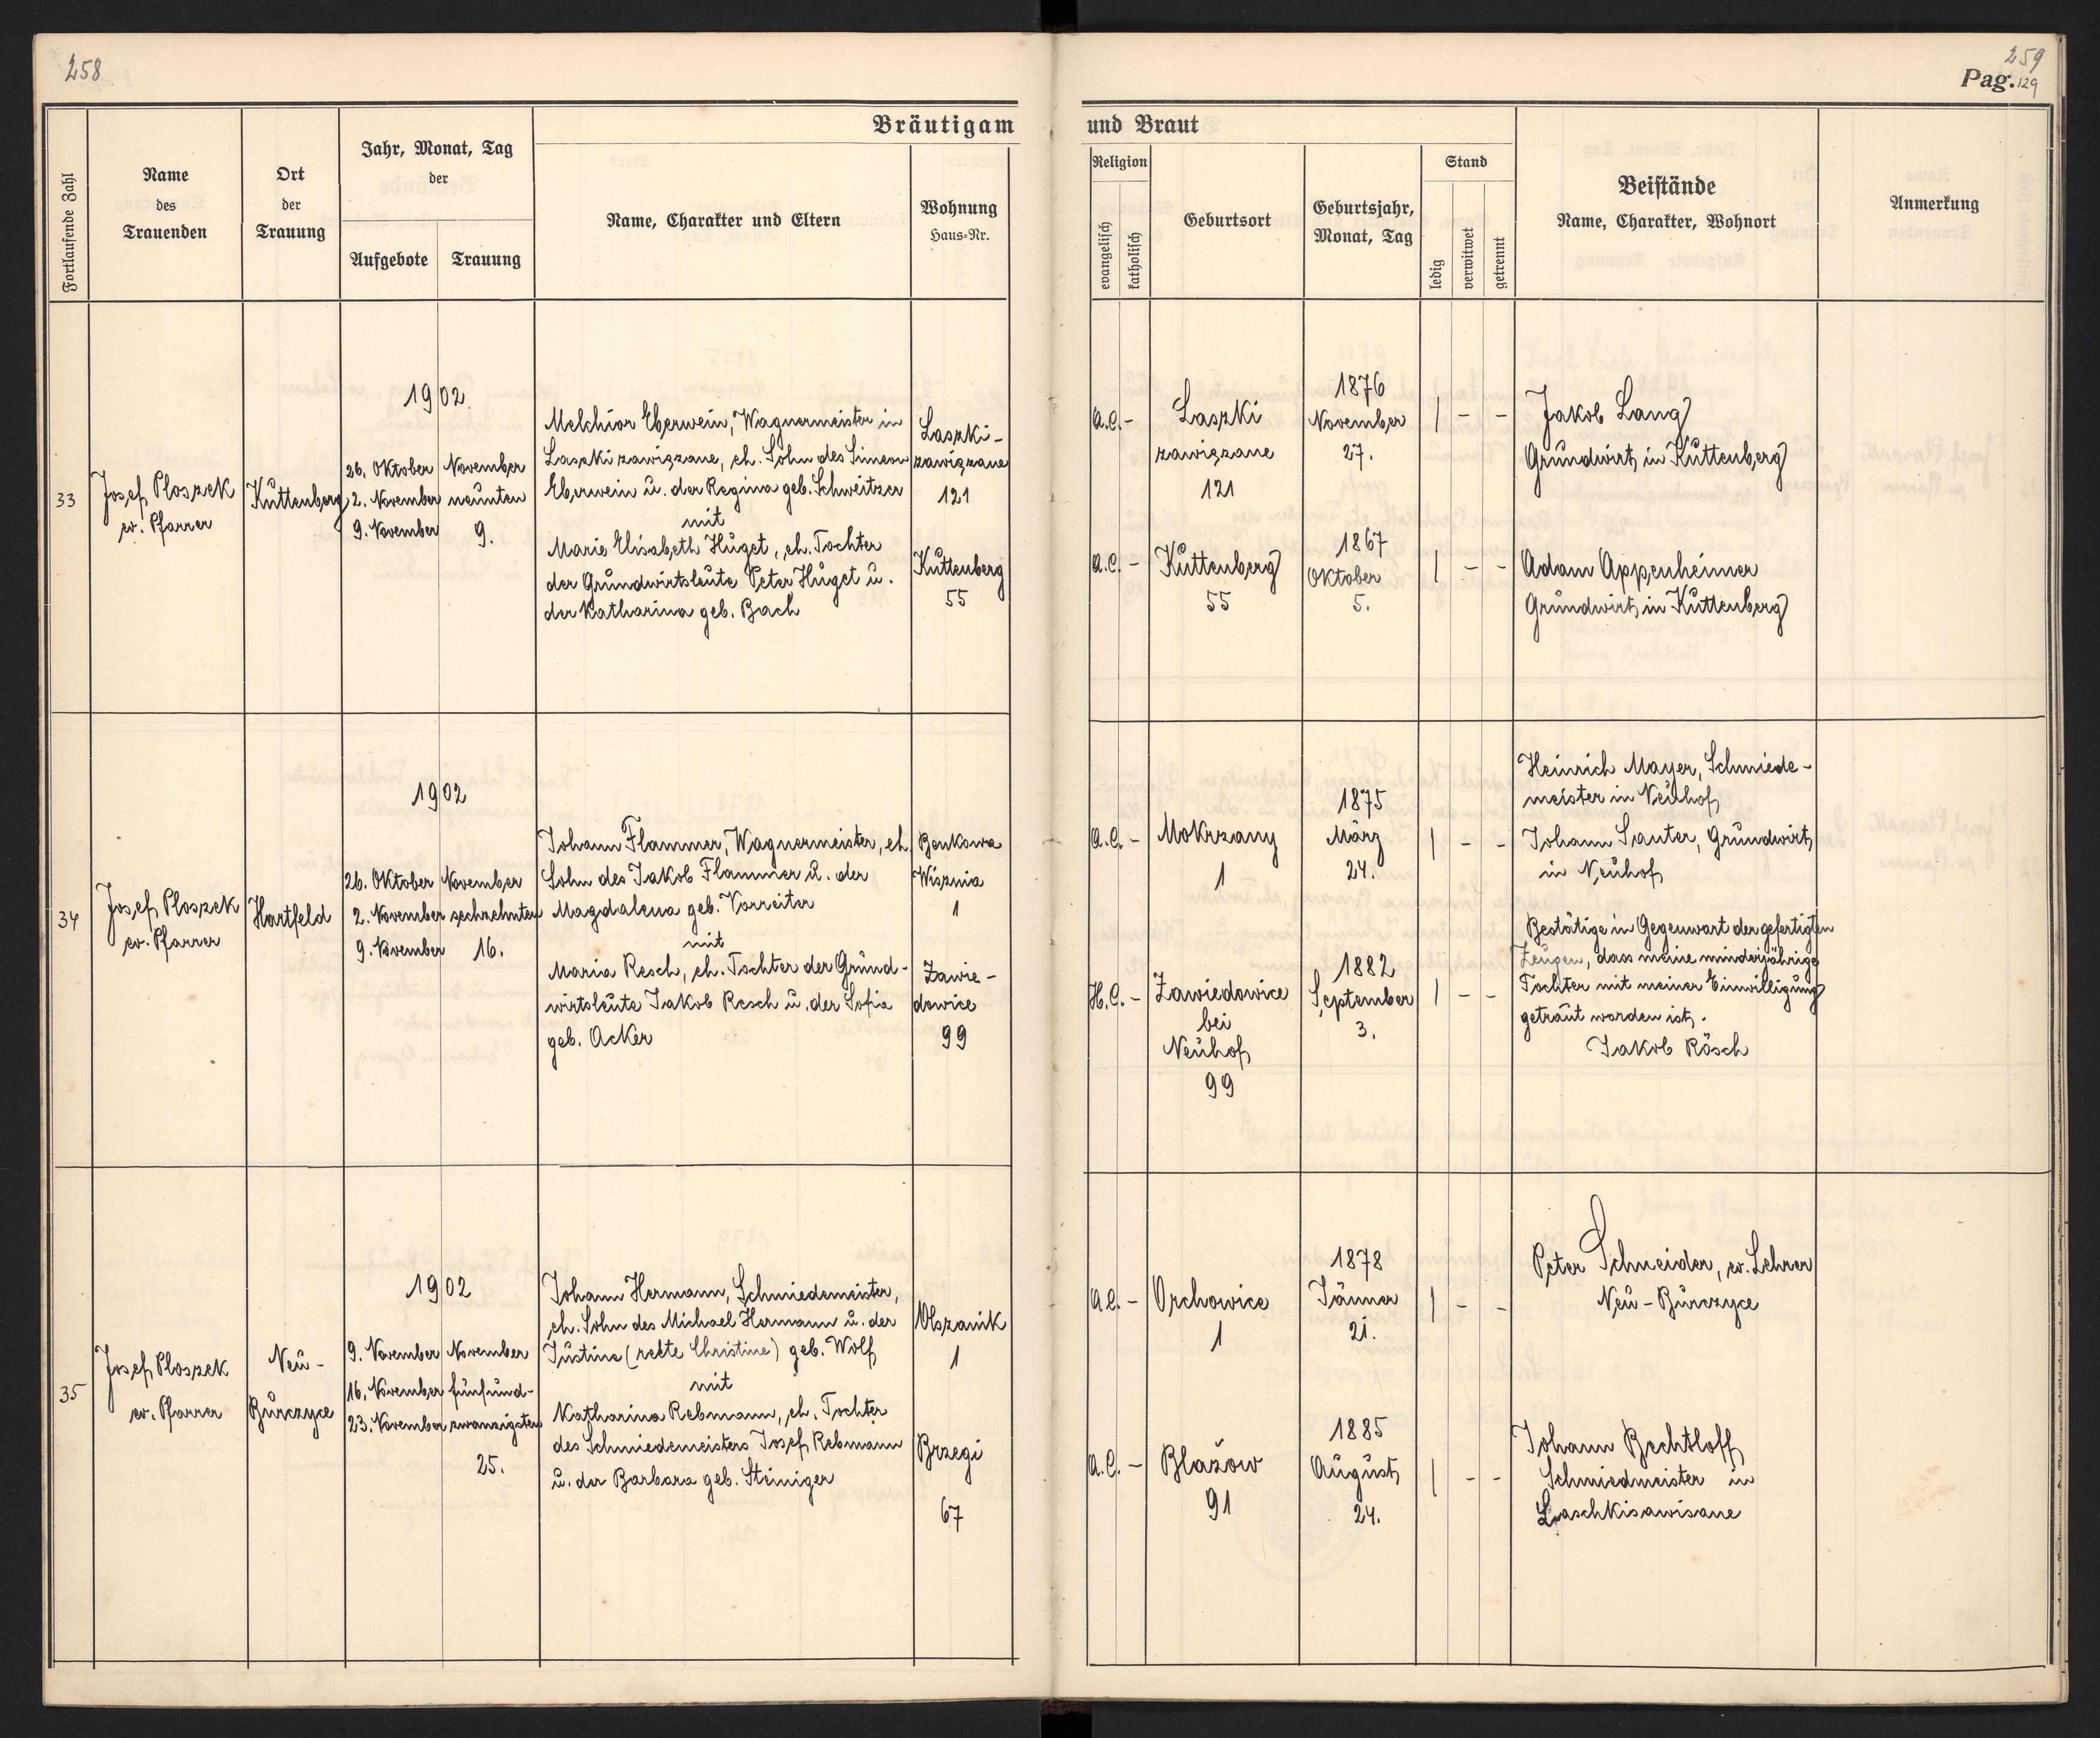 258
259
Pag. 129
Bräutigam und Braut
Fortlaufende Zahl
Name
des
Trauenden
Ort
der
Trauung
Jahr, Monat, Tag
der
Aufgebote
Trauung
Name, Charakter und Eltern
Wohnung
Haus-Nr.
Religion
evangelisch
katholisch
Geburtsort
Geburtsjahr,
Monat, Tag
Stand
ledig
verwitwet
getrennt
Beistände
Name, Charakter, Wohnort
Anmerkung
33
Josef Ploszek
ev. Pfarrer
Kuttenberg
1902.
26. Oktober
2. November
9. November
November
neunten
9.
Melchior Eberwein, Wagnermeister in
Laszki zawiązane, eh. Sohn des Simeon
Eberwein u. der Regina geb. Schweitzer
mit
Marie Elisabeth Huget, eh. Tochter
der Grundwirtsleute Peter Huget u.
der Katharina geb. Bach
Laszki-
zawiązane
121
Kuttenberg
55
A.C. -
Laszki
zawiązane
121
1876
November
27.
| - -
A.C. -
Kuttenberg
55
1867
Oktober
5.
| - -
Jakob Lang
Grundwirt in Kuttenberg
Adam Appenheimer
Grundwirt in Kuttenberg
34
Josef Ploszek
ev. Pfarrer
Hartfeld
1902
26. Oktober
2. November
9. November
November
sechzehnten
16.
Johann Flammer, Wagnermeister, eh.
Sohn des Jakob Flammer u. der
Magdalena geb. Vorreiter
mit
Maria Resch, eh. Tochter der Grund-
wirtsleute Jakob Resch u. der Sofia
geb. Acker
Benkowa
Wisznia
1
Zawie-
dowice
99
A.C. -
Mokrzany
1
1875
März
24.
| - -
H.C. -
Zawiedowice
bei
Neuhof
99
1882
September
3.
| - -
Heinrich Mayer, Schmiede-
meister in Neuhof
Johann Sauter, Grundwirt
in Neuhof
Bestätige in Gegenwart der gefertigten
Zeugen, dass meine minderjährige
Tochter mit meiner Einwilligung
getraut worden ist.
Jakob Rösch
35
Josef Ploszek
ev. Pfarrer
Neu-
Burczyce
1902
9. November
16. November
23. November
November
fünfund-
zwanzigsten
25.
Johann Hermann, Schmiedemeister,
eh. Sohn des Michael Hermann u. der
Justine (rekte Christine) geb. Wolf
mit
Katharina Rebmann, eh. Tochter
des Schmiedemeisters Josef Rebmann
u. der Barbara geb. Steiniger
Olszanik
1
Brzegi
67
A.C. -
Orchowice
1
1878
Jänner
21.
| - -
A.C. -
Błażów
91
1885
August
24.
| - -
Peter Schneider, ev. Lehrer
Neu-Burczyce
Johann Bechtloff
Schmiedmeister in
Laschkisawisane